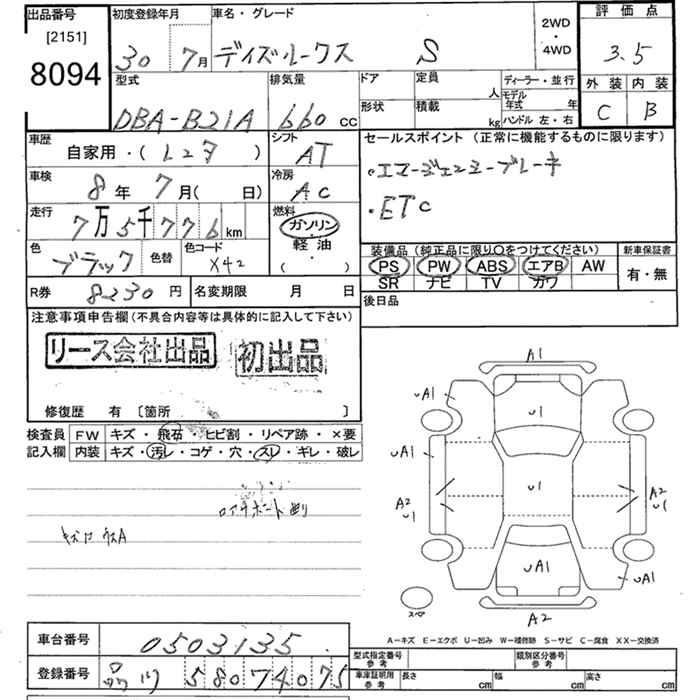 出品番号
[2151]
8094
初度登録年月
30 7月
車名・グレード
デイズルークス S
2WD
・
4WD
評価点
3.5
外装 内装
C B
型式
DBA-B21A
排気量
660 cc
ドア 定員 人
形状 積載 kg
ディーラー・並行
モデル年式 年
ハンドル 左・右
車歴
自家用・( レンタ )
シフト
AT
車検
8年 7月( 日)
冷房
AC
走行
7万5千776km
燃料
ガソリン
軽油
( ・ )
色
ブラック
色替
色コード
X42
セールスポイント(正常に機能するものに限ります)
・エマージェンシーブレーキ
・ETC
装備品(純正品に限り〇をつけてください)
PS PW ABS エアB AW
SR ナビ TV カワ
新車保証書
有・無
R券 8230円
名変期限 月 日
後日品
注意事項申告欄(不具合内容等は具体的に記入して下さい)
リース会社出品
初出品
修復歴 有 〔箇所 〕
検査員 FW キズ・飛石・ヒビ割・リペア跡・×要
記入欄 内装 キズ・汚レ・コゲ・穴・スレ・ギレ・破レ
A1
UA1
U1
UA1
U1
A2
U1
A2
U1
UA1
UA1
A2
スペア
A-キズ E-エクボ U-凹み W-補修跡 S-サビ C-腐食 XX-交換済
車台番号
0503135
登録番号
580 7 4075
型式指定番号
参考
類別区分番号
参考
車庫証明用
参考
長さ cm
幅 cm
高さ cm